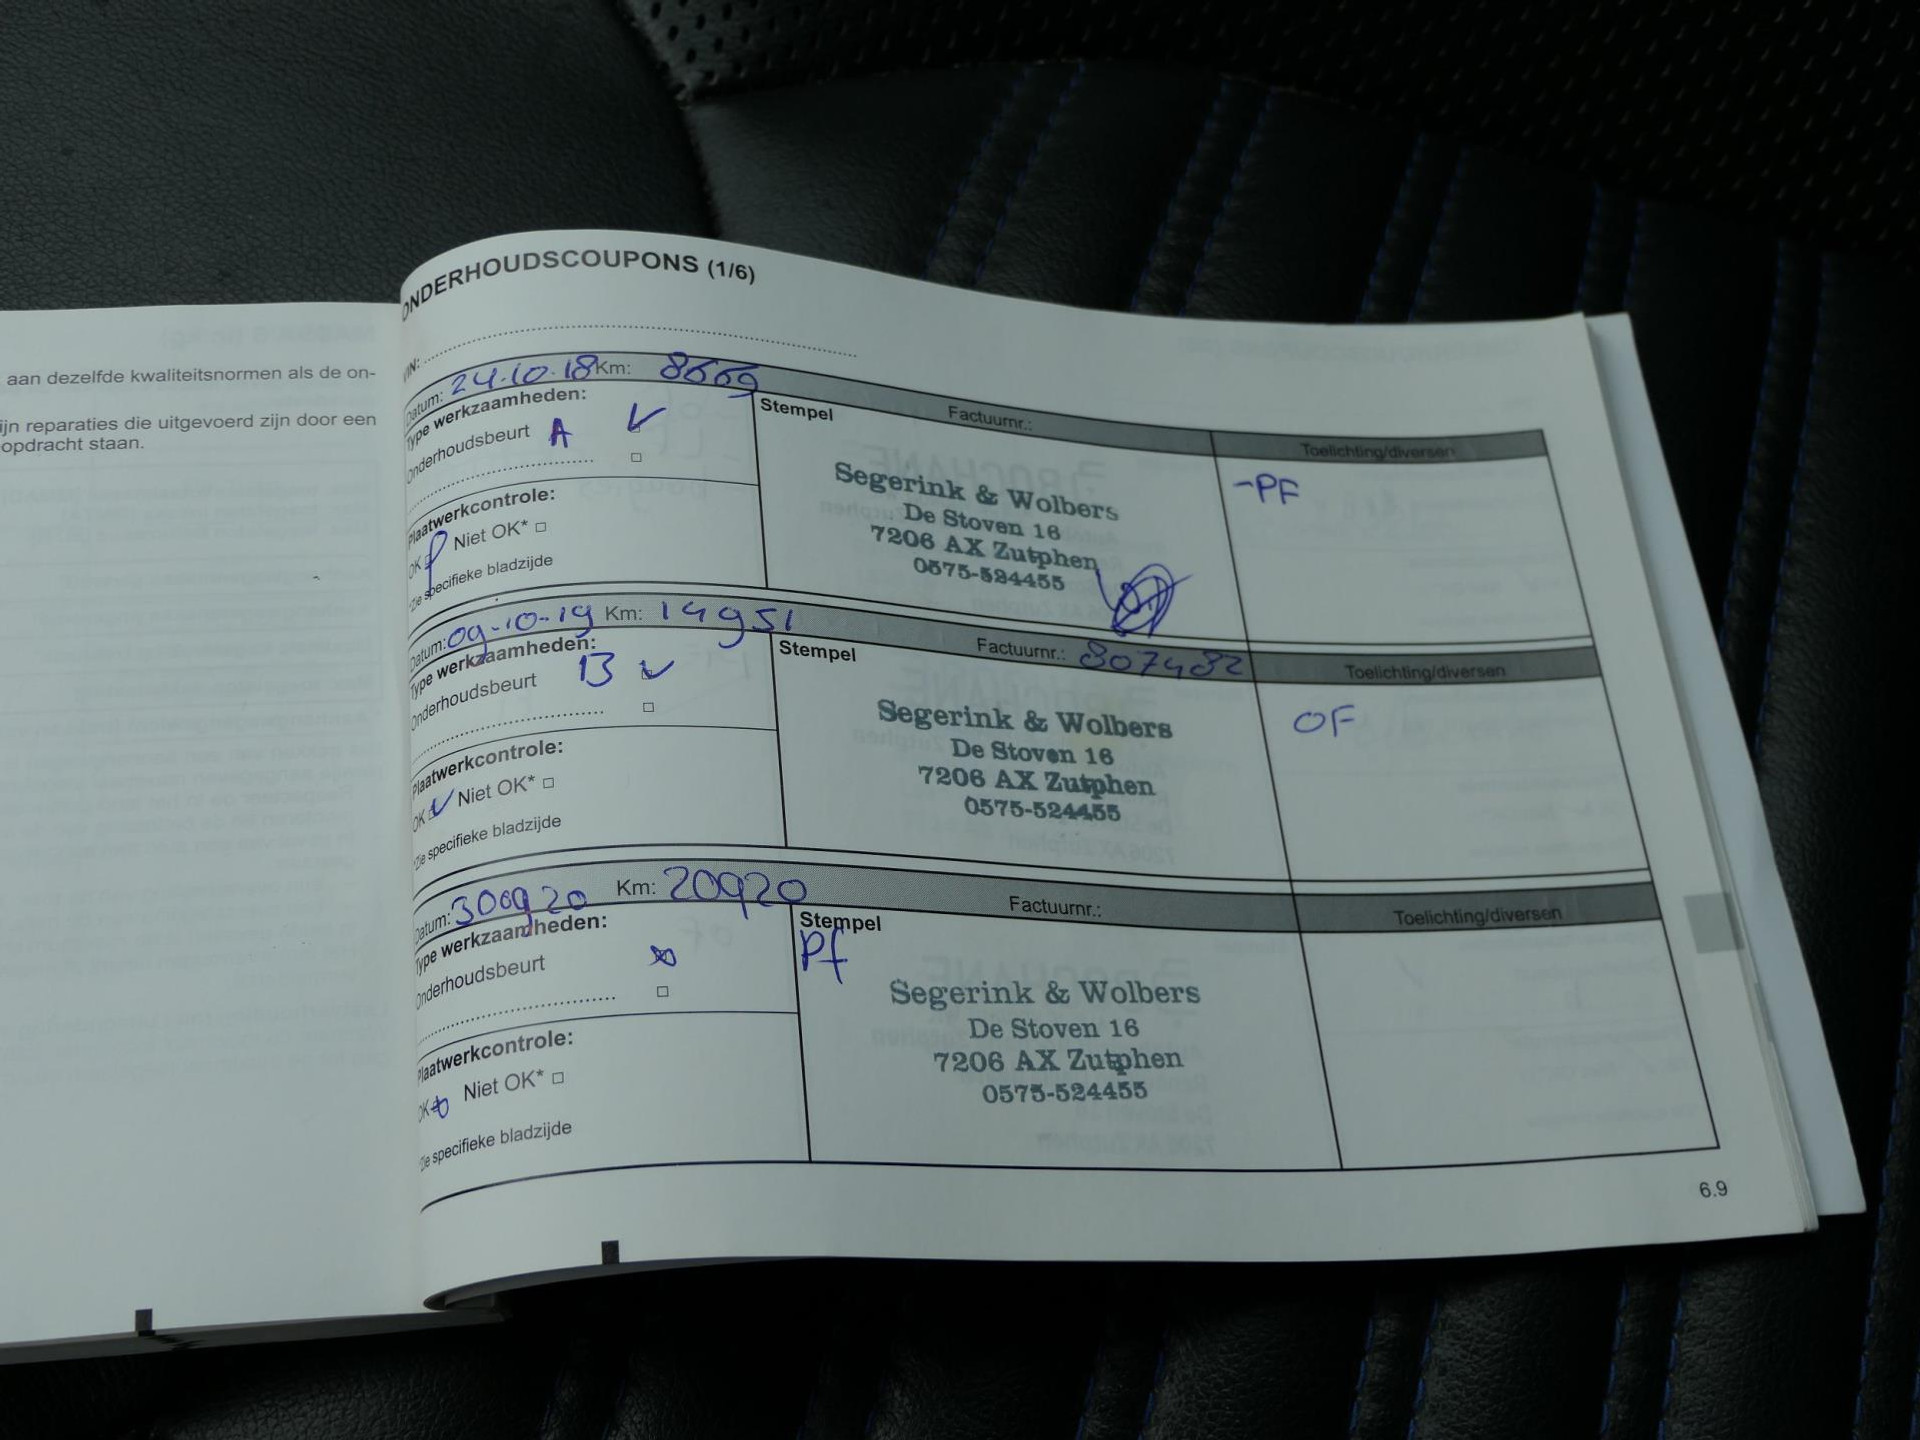 aan dezelfde kwaliteitsnormen als de on-
ijn reparaties die uitgevoerd zijn door een
opdracht staan.
ONDERHOUDSCOUPONS (1/6)
VIN:
Datum: 24.10.18 Km: 8669 Factuurnr.: Toelichting/diversen
Type werkzaamheden:
Onderhoudsbeurt A
Plaatwerkcontrole:
OK Niet OK*
*Zie specifieke bladzijde
Stempel
Segerink & Wolbers
De Stoven 16
7206 AX Zutphen
0575-524455
-PF
Datum: 09-10-19 Km: 14951 Factuurnr.: 807482 Toelichting/diversen
Type werkzaamheden:
Onderhoudsbeurt B
Plaatwerkcontrole:
OK Niet OK*
*Zie specifieke bladzijde
Stempel
Segerink & Wolbers
De Stoven 16
7206 AX Zutphen
0575-524455
OF
Datum: 300920 Km: 20920 Factuurnr.: Toelichting/diversen
Type werkzaamheden:
Onderhoudsbeurt
Plaatwerkcontrole:
OK Niet OK*
*Zie specifieke bladzijde
Stempel
Pf
Segerink & Wolbers
De Stoven 16
7206 AX Zutphen
0575-524455
6.9